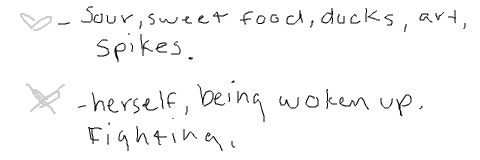 - Sour, sweet food, ducks, art,
spikes.
- herself, being woken up.
Fighting.